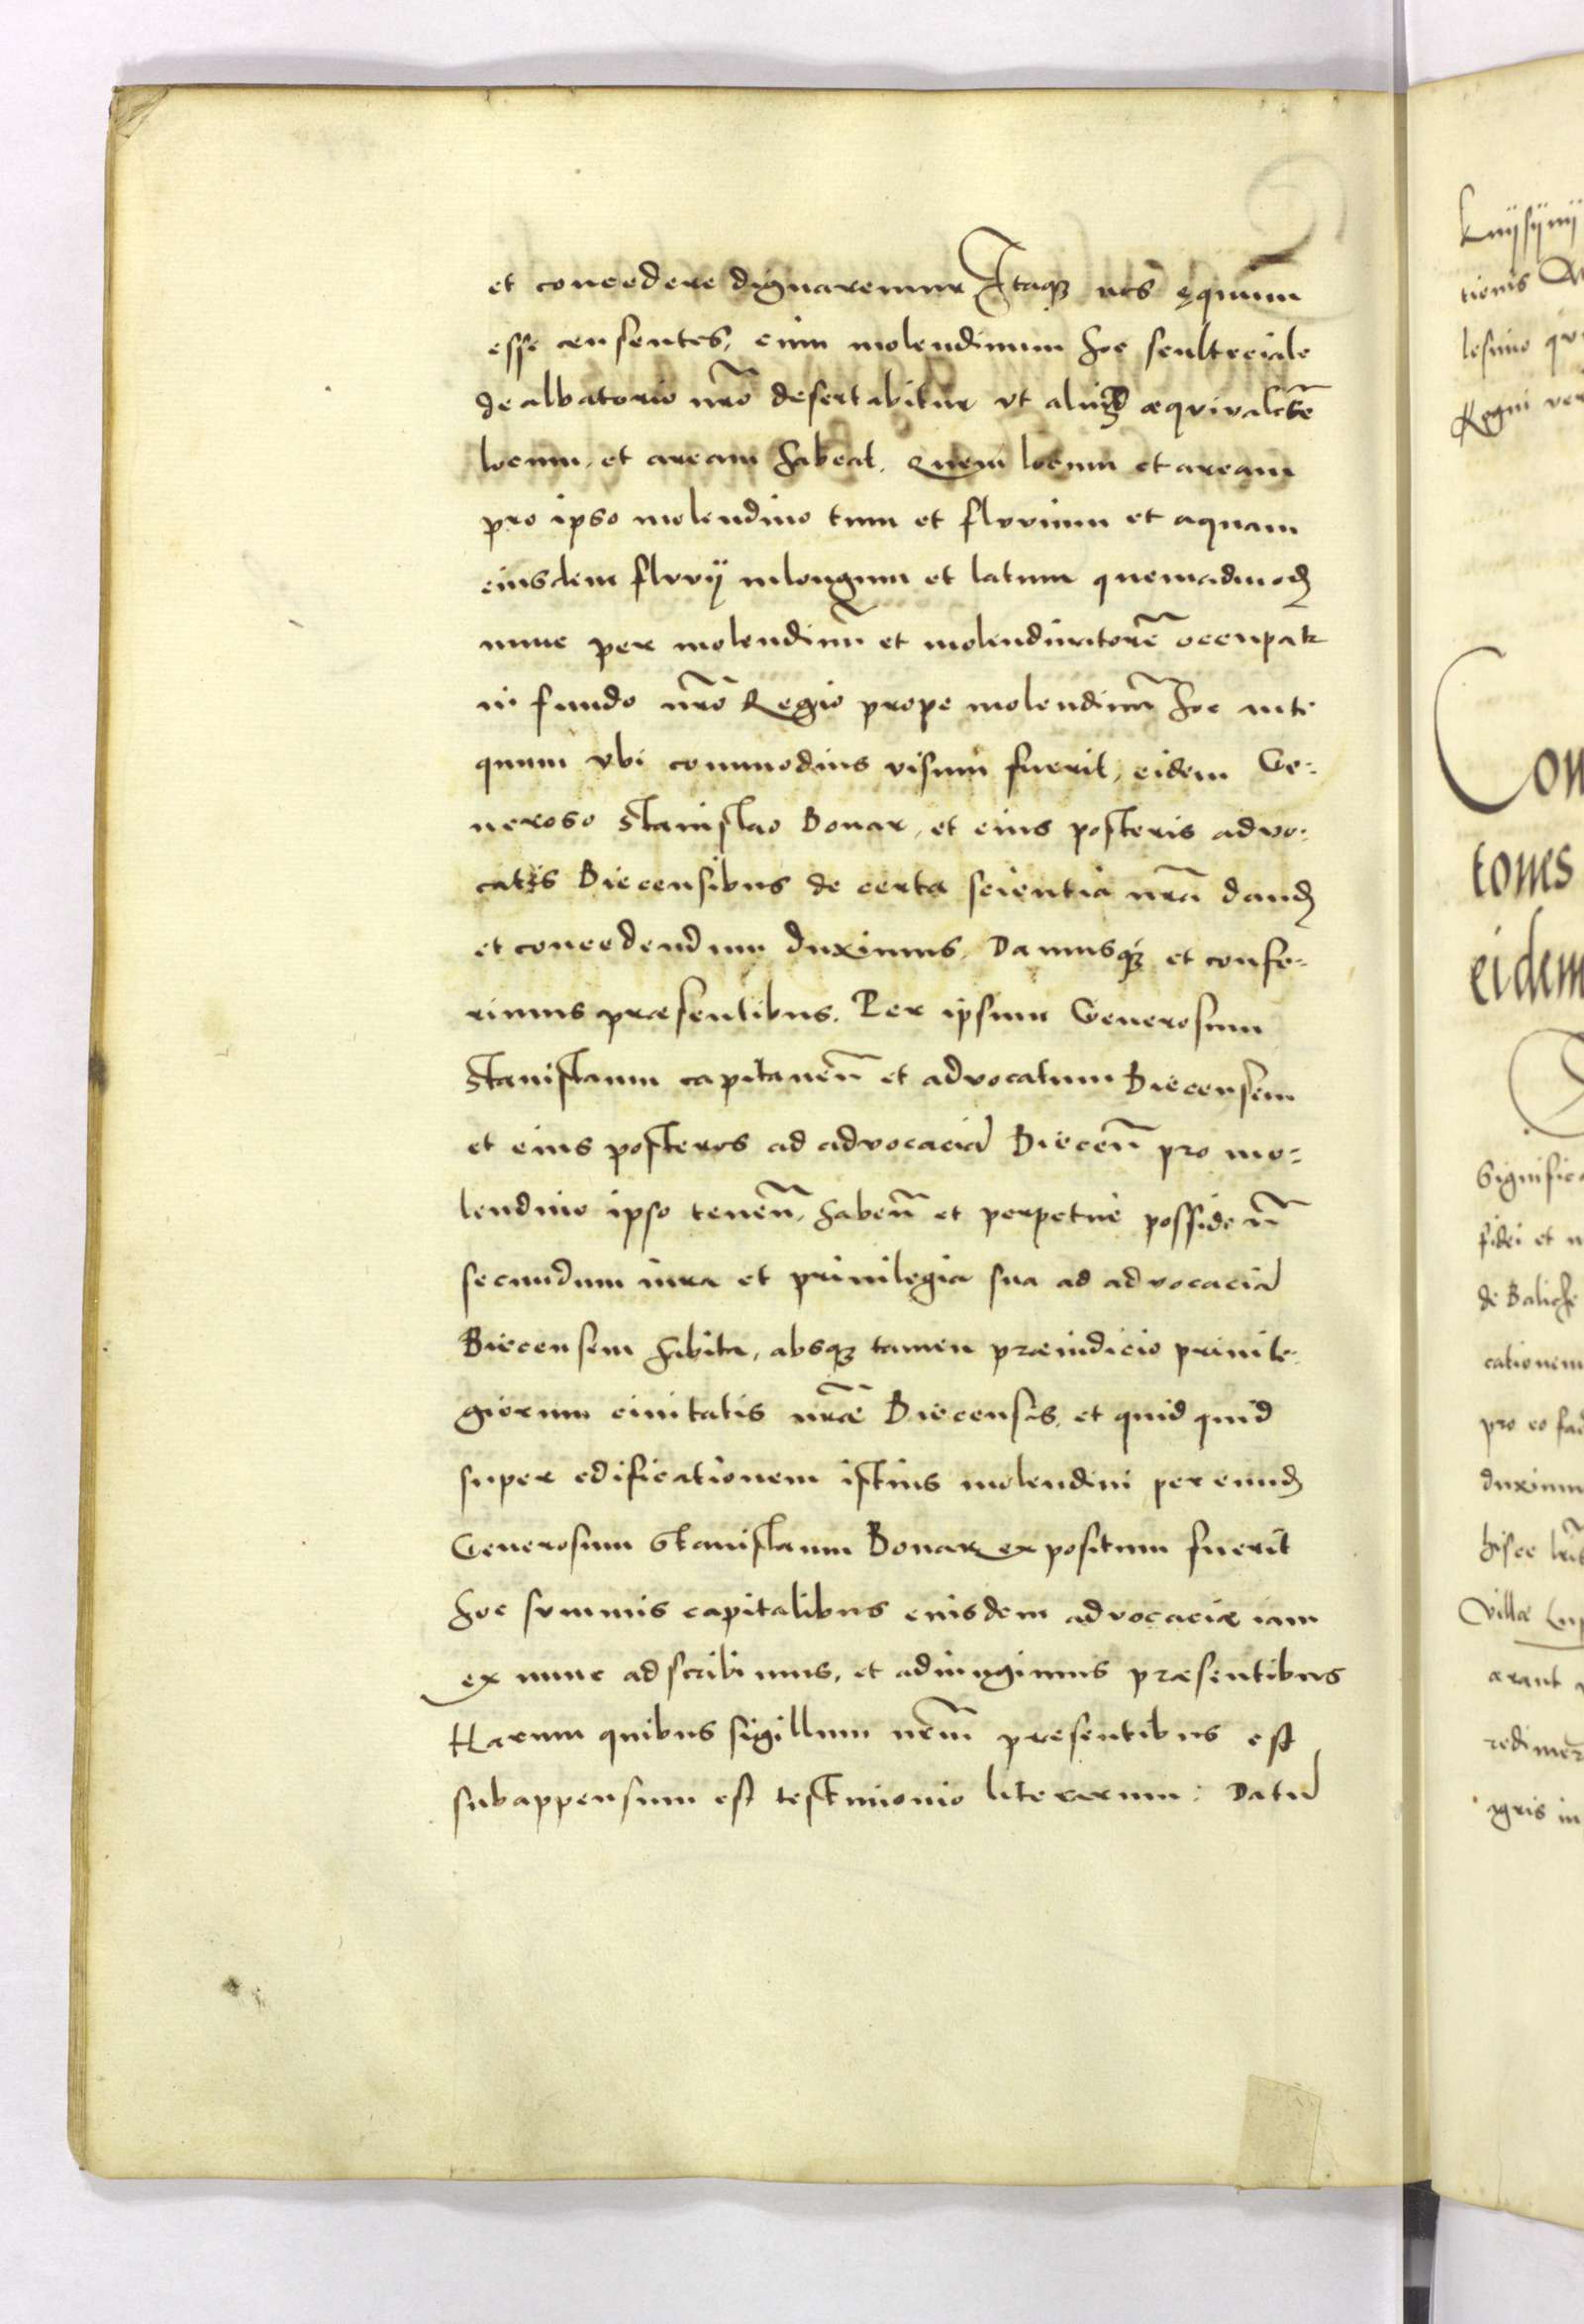 et concedere dignaremur Itaq; nos ęquum
esse censentes, cum molendinum hoc scultetiale
dealbatorio nrõ desertabitur vt aliud æquivalẽte
locum, et aream habeat. Quem locum et aream
pro ipso molendino tum et fluvium et aquam
eiusdem fluvij in longum et latum quemadmod
nunc per molendinũ et molendinatorẽ occupatr
in fundo nrõ Regio prope molendinũ hoc anti
quum vbi commodius visum fuerit, eidem Ge:
neroso Stanislao Bonar, et eius posteris advo:
catis Biecensibus de certa scientia nrã dand
et concedendum duximus, Damusq; et confe:
rimus præsentibus. Per ipsum Generosum
Stanislaum capitaneũ et advocatum Biecensem
et eius posteros ad advocaciã Biecen̄ pro mo:
lendino ipso tenen̄, haben̄ et perpetuè possiden̄
secundum iura et privilegia sua ad advocaciã
Biecensem habita, absq; tamen præiudicio privile:
giorum civitatis nrãe Biecensis, et quid quid
super edificationem istius molendini per eund
Generosum Stanislaum Bonar expositum fuerit
hoc summis capitalibus eiusdem advocaciæ iam
ex nunc adscribimus, et adiungimus præsentibus
Harum quibus sigillum nrm̃ presentibus est
subappensum est testimonio literarum: Datũ
Con
tores
eidem
Significa
fidei et
de Balicze
cationem
pro eo
duximu
hisce
villæ
erant
redimer
agris in